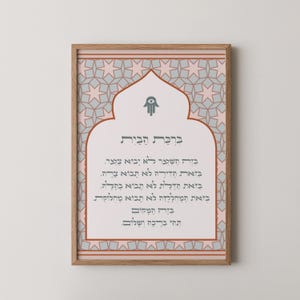 ברכת הבית
בזה השער לא יבוא צער
בזאת הדירה לא תבוא צרה.
בזאת הדלת לא תבוא בהלה.
בזאת המחלקה לא תבוא מחלוקת.
בזה המקום
תהי ברכה ושלום.